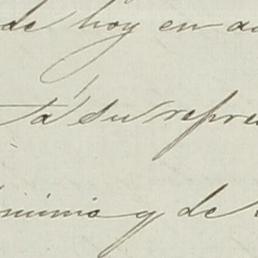 de hoy en a
ta su repre
nimia y de